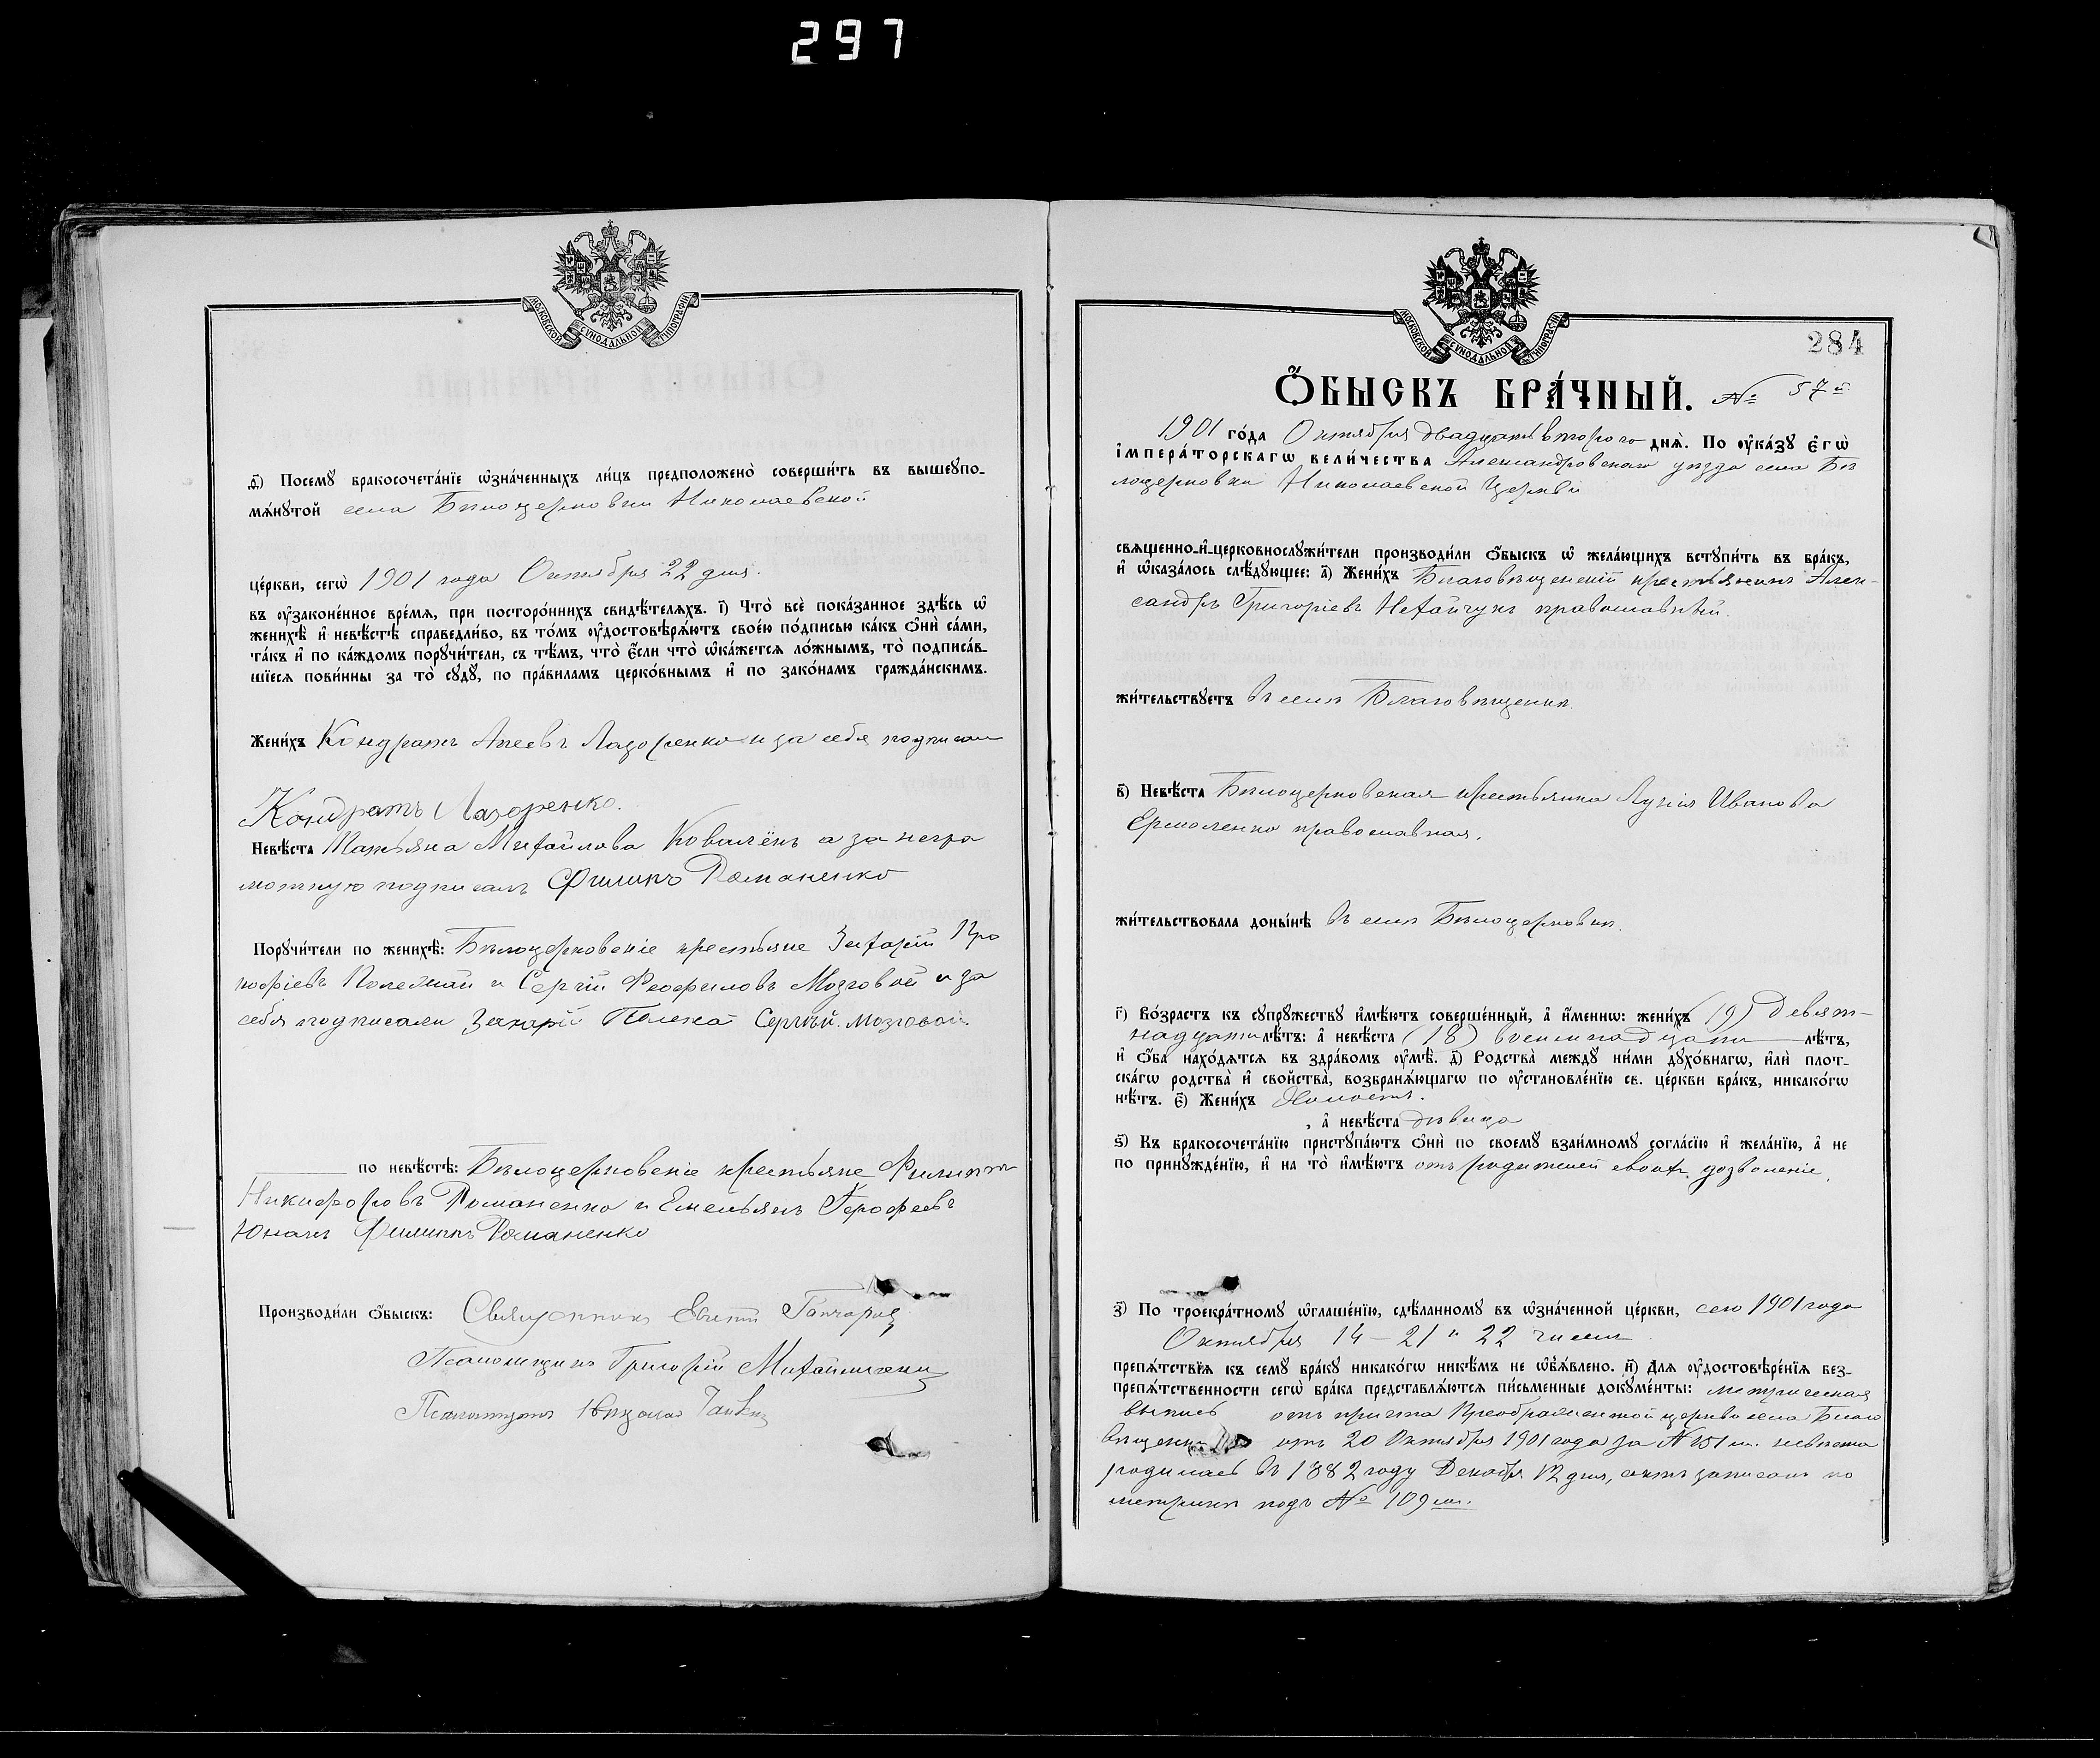 297
МОСКОВСКОЙ СѴНОДАЛЬНОЙ ТИПОГРАФІИ
ѳ҃) Посемꙋ бракосочета́нїе ѡ҆зна́ченныхъ ли́цъ предположено̀ соверши́ть въ вышеꙋпо-
мѧ́нꙋтой села Бѣлоцерковки Николаевской
це́ркви, сегѡ̀ 1901 года Октября 22 дня.
въ ᲂу҆законе́нное вре́мѧ, при посторо́ннихъ свидѣ́телѧхъ. і҃) Что̀ всѐ пока́занное здѣ́сь ѡ҆
женихѣ̀ и҆ невѣ́стѣ справедли́во, въ то́мъ ᲂу҆достовѣрѧ́ютъ свое́ю по́дписью ка́къ ѻ҆нѝ са́ми,
та́къ и҆ по ка́ждомъ порꙋчи́тели, съ тѣ́мъ, что̀ є҆́сли что̀ ѡ҆ка́жетсѧ ло́жнымъ, то̀ подписа́в-
шїесѧ пови́нны за то̀ сꙋдꙋ̀, по пра́виламъ церко́внымъ и҆ по зако́намъ гражда́нскимъ.
Жени́хъ Кондратъ Лазоренко и за себя подписал
Кондратъ Лазоренко.
Невѣ́ста Татьяна Михайлова Ковалёнъ а за негра
мотную подписалъ Филипъ Романенко
Порꙋчи́тели по женихѣ̀: Бѣлоцерковскіе крестьяне Захарій Про
кофіевъ Полежай и Сергій Феофиловъ Мозговой и за
себя подписали Захарій Полежай Сергѣй. Мозговой.
по невѣ́стѣ: Бѣлоцерковскіе крестьяне Филиппъ
Никифоровъ Романенко и Емельянъ Ерофеевъ
Юначъ Филипъ Романенко
Производи́ли ѻ҆́быскъ: Священникъ Гончаровъ
Псаломщикъ Григорій
Псаломщикъ
МОСКОВСКОЙ СѴНОДАЛЬНОЙ ТИПОГРАФІИ
284
Ѻ҆́БЫСКЪ БРА́ЧНЫЙ. № 57й
1901 го́да Октября двадцать второго днѧ̀. По ᲂу҆ка́зꙋ є҆гѡ̀
і҆мпера́торскагѡ вели́чества Александровскаго уѣзда села Бѣ
лоцерковки Николаевской Церкви
свѧщенно-и҆-церковнослꙋжи́тели производи́ли ѻ҆́быскъ ѡ҆ жела́ющихъ встꙋпи́ть въ бра́къ,
и҆ ѡ҆каза́лось слѣ́дꙋющее: а҃) Жени́хъ Благовѣщенскій крестьянинъ Алек-
сандръ Григоріевъ Нехайчукъ православный.
жи́тельствꙋетъ въ селѣ Благовѣщенкѣ.
в҃) Невѣ́ста Бѣлоцерковская крестьянка Лукія Иванова
Ермоленко православная.
жи́тельствовала доны́нѣ въ селѣ Бѣлоцерковкѣ.
г҃) Во́зрастъ къ сꙋпрꙋ́жествꙋ и҆мѣ́ютъ соверше́нный, а҆ и҆́меннѡ: жени́хъ (19) Девят-
надцати лѣ́тъ: а҆ невѣ́ста (18) восемнадцати лѣ́тъ,
и҆ ѻ҆́ба нахо́дѧтсѧ въ здра́вомъ ᲂу҆мѣ̀. д҃) Родства̀ междꙋ ни́ми дꙋхо́внагѡ, и҆лѝ плот-
ска́гѡ родства̀ и҆ свойства̀, возбранѧ́ющагѡ по ᲂу҆становле́нїю св. це́ркви бра́къ, никако́гѡ
нѣ́тъ. є҃) Жени́хъ Холостъ.
, а҆ невѣ́ста дѣвица
ѕ҃) Къ бракосочета́нїю пристꙋпа́ютъ ѻ҆нѝ по своемꙋ̀ взаи́мномꙋ согла́сїю и҆ жела́нїю, а҆ не
по принꙋжде́нїю, и҆ на то̀ и҆мѣ́ютъ отъ родителей своихъ дозволеніе.
з҃) По троекра́тномꙋ ѡ҆глаше́нїю, сдѣ́ланномꙋ въ ѡ҆зна́ченной це́ркви, сего 1901 года
Октября 14 – 21 и 22 чиселъ
препѧ́тствїѧ къ семꙋ̀ бра́кꙋ никако́гѡ никѣ́мъ не ѡ҆б̾ѧ́влено. и҃) Для ᲂу҆достовѣре́нїѧ без-
препѧ́тственности сегѡ̀ бра́ка представлѧ́ютсѧ пи́сьменные докꙋме́нты: метрическая
выпись отъ причта Преображенской церкви села Благо
вѣщенки отъ 20 Октября 1901 года за № 151 м. невѣста
родилась въ 1882 году Декабря 12 дня, актъ записанъ по
метрикѣ подъ № 109 м.